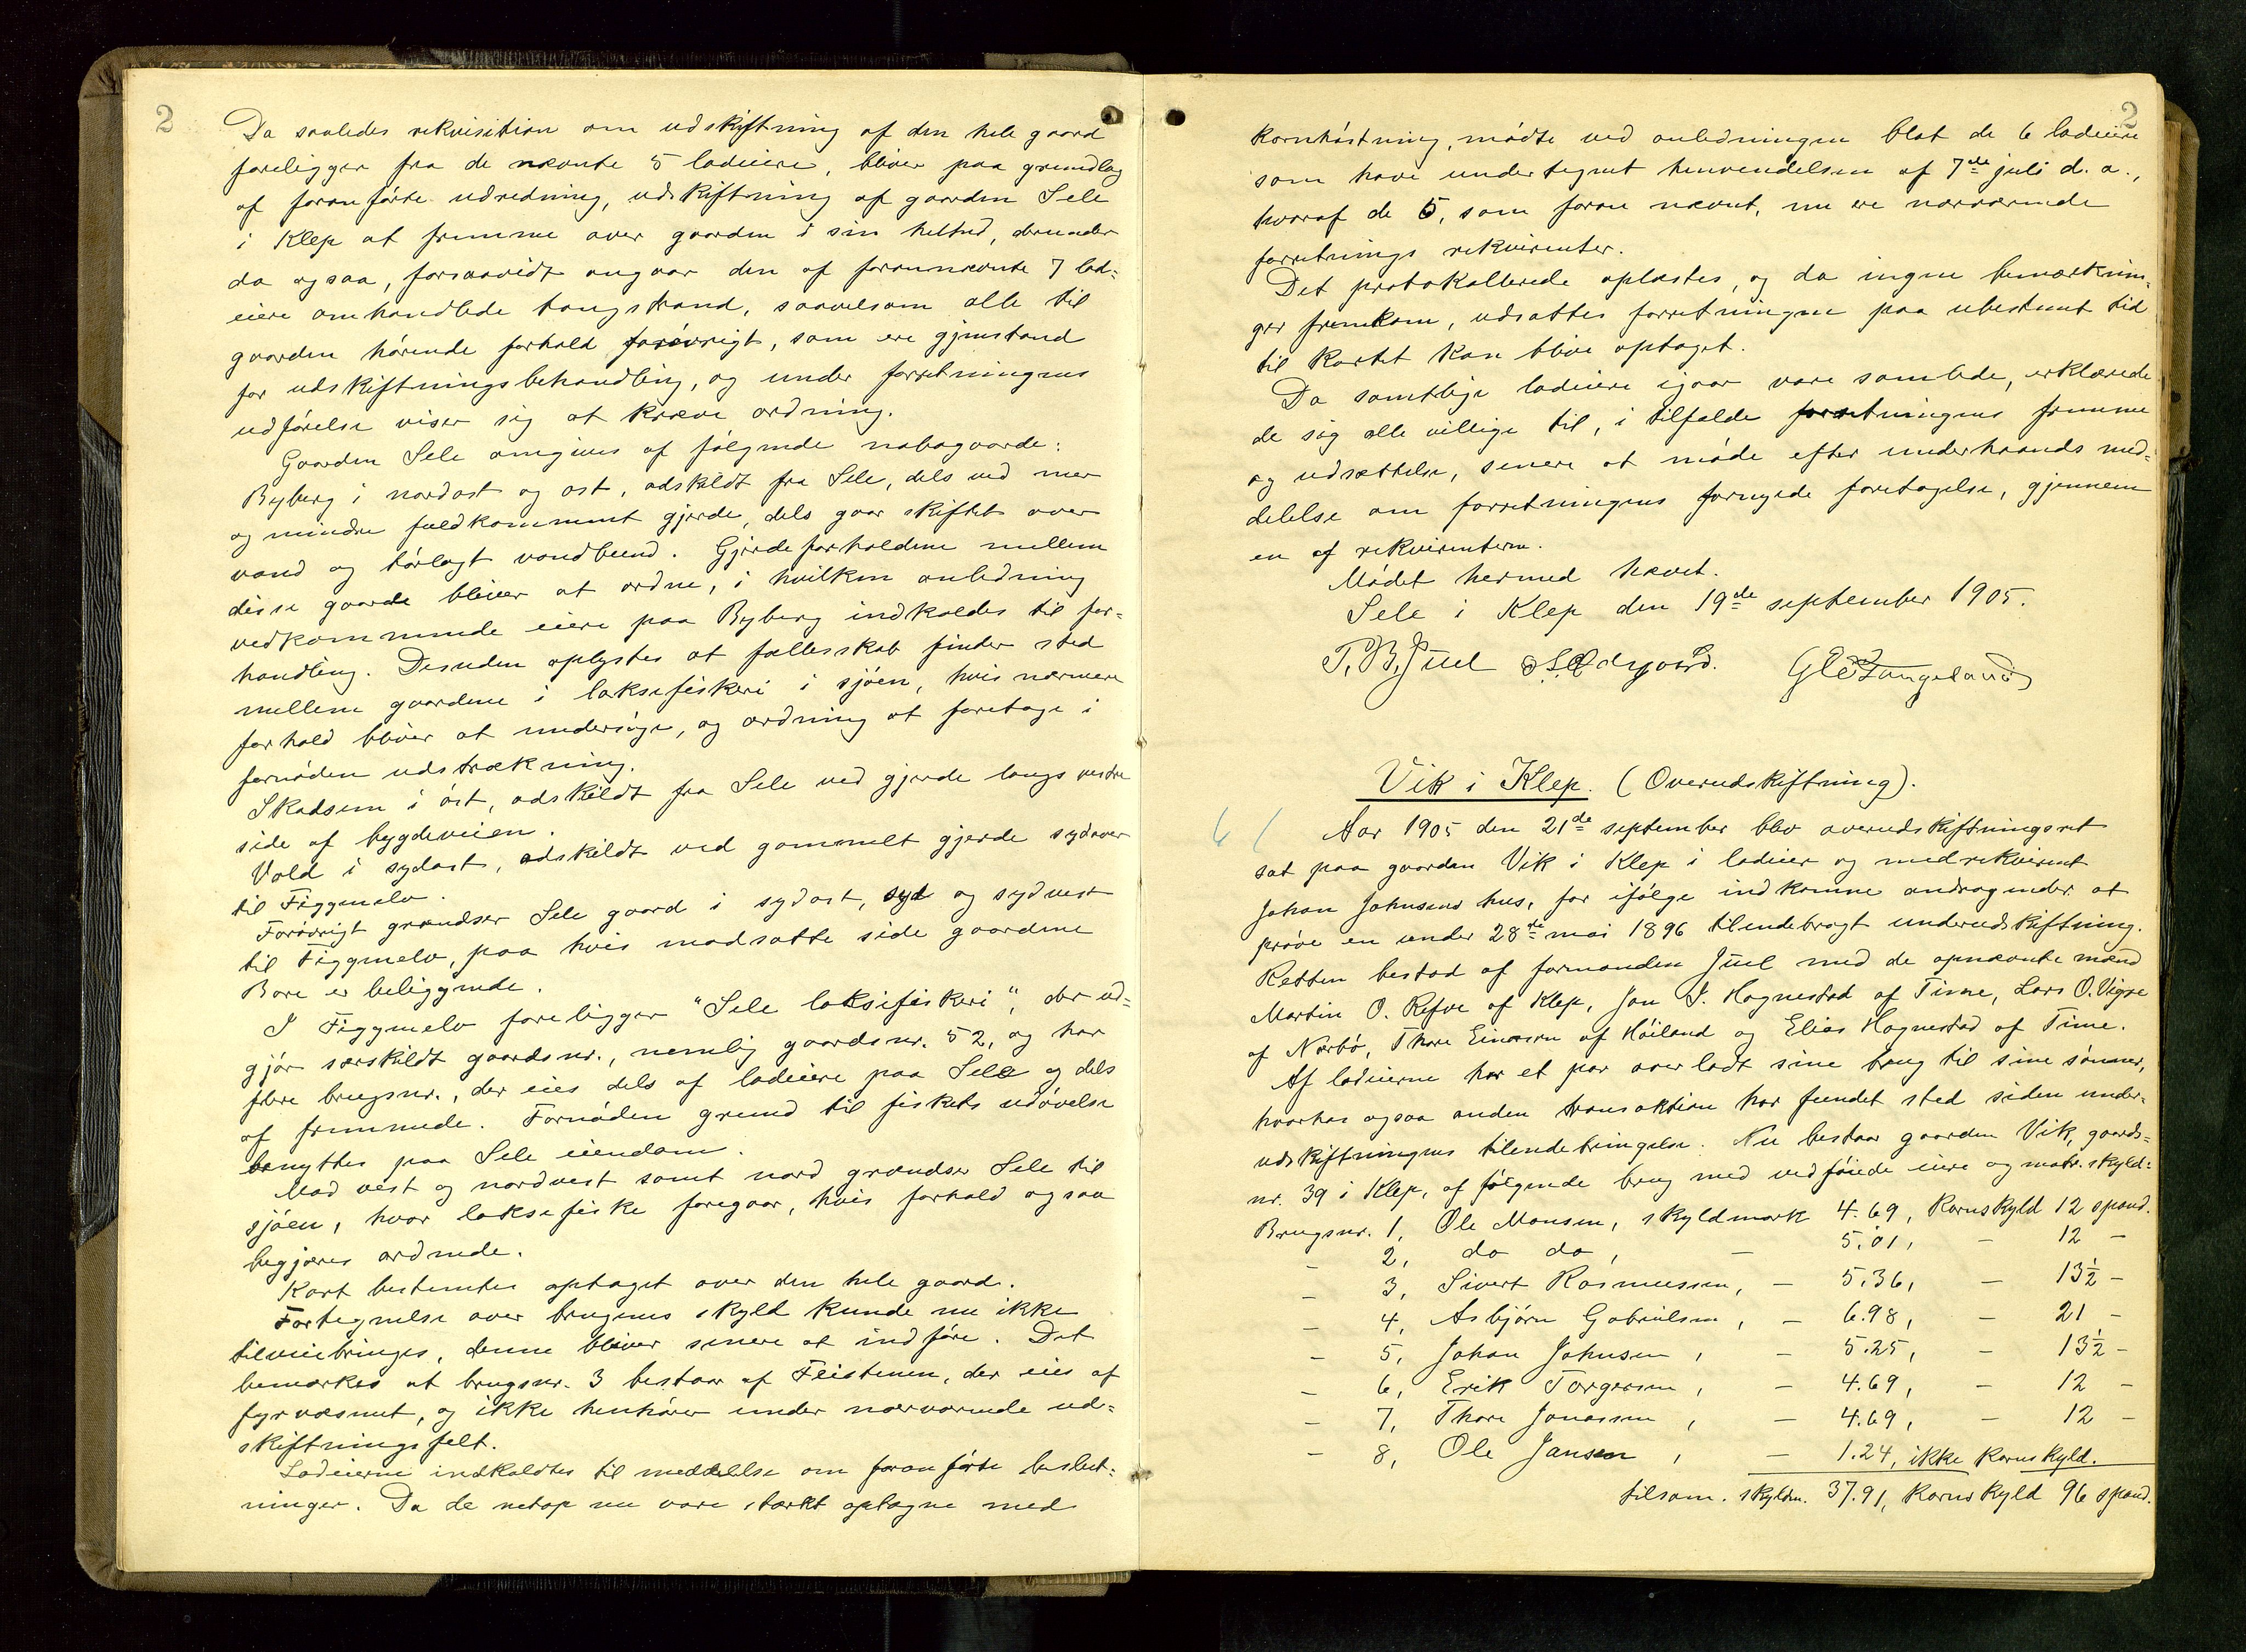 2
Da saaledes rekvisition om udskiftning af den hele gaard
foreligger fra de nævnte 5 lodeiere, bliver paa grundlag
af foranførte udredning, udskiftning af gaarden Sele
i Klep at fremme over gaarden i sin helhed, derunder
da ogsaa, forsaavidt angaar den af forannævnte 7 lod=
eiere omhandlede tangstrand, saavelsom alle til
gaarden hørende forhold forøvrigt, som ere gjenstand
for udskiftningsbehandling, og under forretningens
udførelse viser sig at kræve ordning.
Gaarden Sele omgives af følgende nabogaarde:
Byberg i nordost og ost, adskildt fra Sele, dels ved mer
og mindre fuldkomment gjerde, dels gaar skiftet over
vand og tørlagt vandbund. Gjerdeforholdene mellem
disse gaarde bliver at ordne, i hvilken anledning
vedkommende eiere paa Byberg indkaldes til for=
handling. Desuden oplystes at fællesskab finder sted
mellem gaardene i laksefiskeri i sjøen, hvis nærmere
forhold bliver at undersøge, og ordning at foretage i
fornøden udstrækning.
Skadsem i øst, adskildt fra Sele ved gjerde langs vestre
side af bygdeveien.
Vold i sydost, adskildt ved gammelt gjerde sydover
til Figgenelv.
Forøvrigt grændser Sele gaard i sydost, syd og sydvest
til Figgenelv, paa hvis modsatte side gaardene
Bore er beliggende.
I Figgenelv foreligger "Sele laksefiskeri", der ud=
gjør særskildt gaardsnr., nemlig gaardsnr. 52, og har
flere brugsnr., der eies dels af lodeiere paa Sele og dels
af fremmede. Fornøden grund til fiskets udøvelse
benyttes paa Sele eiendom.
Mod vest og nordvest samt nord grændser Sele til
sjøen, hvor laksefiske foregaar, hvis forhold ogsaa
begjæres ordnede.
Kart bestemtes optaget over den hele gaard.
Fortegnelse over brugenes skyld kunde nu ikke
tilveiebringes, denne bliver senere at indføre. Det
bemærkes at brugsnr. 3 bestaar af Feistenen, der eies af
fyrvæsenet, og ikke henhører under nærværende ud=
skiftningsfelt.
Lodeierne indkaldtes til meddelelse om foranførte beslut=
ninger. Da de netop nu vare stærkt optagne med
2
kornhøstning, mødte ved anledningen blot de 6 lodeiere
som have undertegnet henvendelsen af 7de juli d. a.,
hvoraf de 5, som foran nævnt, nu ere nærværende
forretnings rekvirenter.
Det protokollerede oplæstes, og da ingen bemærknin=
ger fremkom, udsattes forretningen paa ubestemt tid
til kartet kan blive optaget.
Da samtlige lodeiere igaar vare samlede, erklærede
de sig alle villige til, i tilfælde forretningens fremme
og udsættelse, senere at møde efter underhaands med=
delelse om forretningens fornyede foretagelse, gjennem
en af rekvirenterne.
Mødet hermed hævet.
Sele i Klep den 19de september 1905.
T. B. Juel
Vik i Klep. (Overudskiftning).
Aar 1905 den 21de september blev overudskiftningsret
sat paa gaarden Vik i Klep i lodeier og medrekvirent
Johan Johnsens hus, for ifølge indkomne andragender at
prøve en under 28de mai 1896 tilendebragt underudskiftning.
Retten bestod af formanden Juel med de opnævnte mænd
Martin O. Refve af Klep, Jon J. Hognestad af Time, Lars O. Vigre
af Nærbø, Thore Einarsen af Høiland og Elias Hognestad af Time.
Af lodeierne har et par overladt sine brug til sine sønner,
hvorhos ogsaa anden transaktion har fundet sted siden under=
udskiftningens tilendebringelse. Nu bestaar gaarden Vik, gaards=
nr. 39 i Klep, af følgende brug med vedføiede eiere og matr. skyld:
Brugsnr. 1, Ole Monsen, skyldmark 4.69, kornskyld 12 spand.
- 2, do do, - 5.01, - 12 -
- 3, Sivert Rasmussen, - 5.36, - 13½ -
- 4, Asbjørn Gabrielsen, - 6.98, - 21 -
- 5, Johan Johnsen, - 5.25, - 13½ -
- 6, Erik Torgersen, - 4.69, - 12 -
- 7, Thore Jonassen, - 4.69, - 12 -
- 8, Ole Jansen, - 1.24, ikke kornskyld.
tilsam. skyldm. 37.91, kornskyld 96 spand.